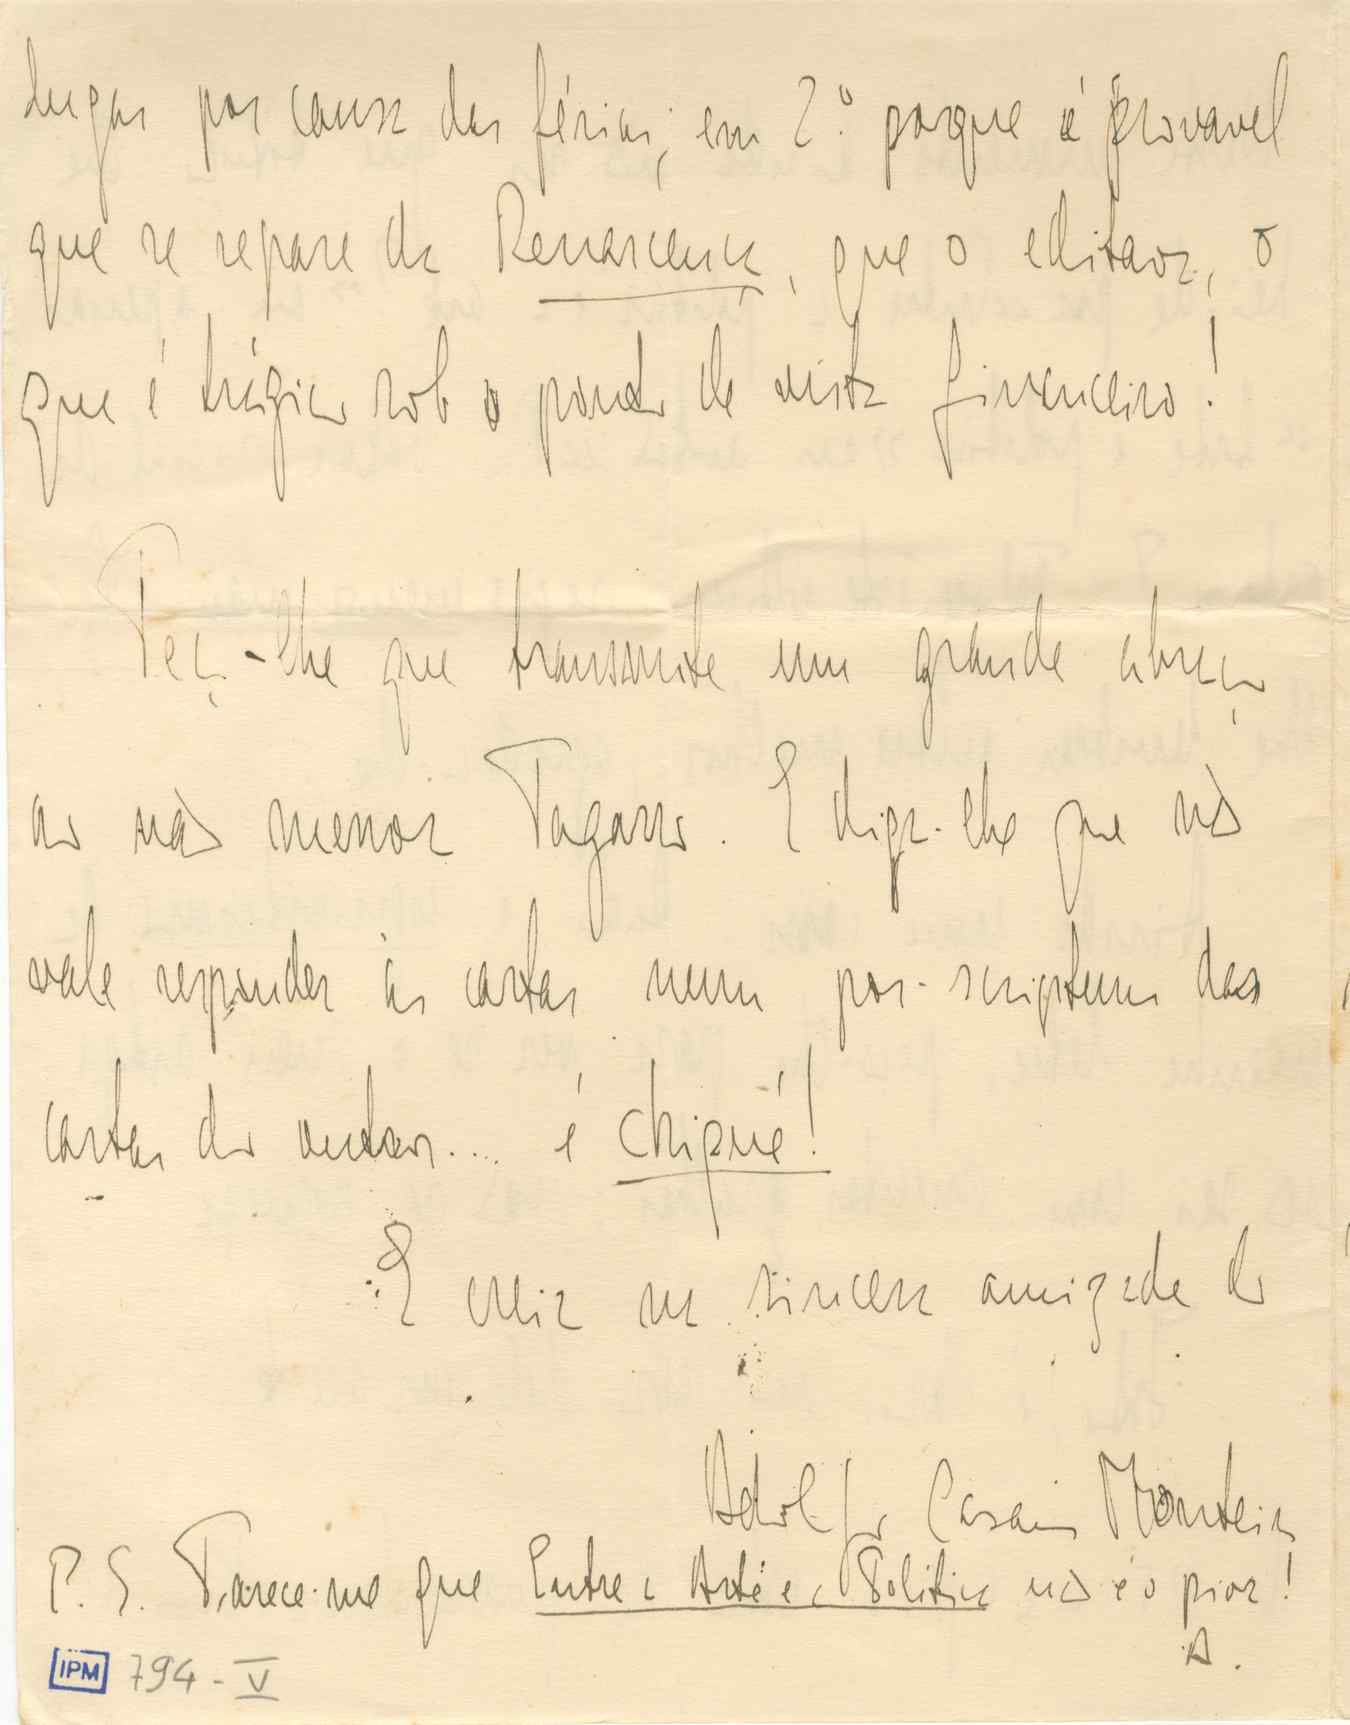 lugar por causa das férias; em 2.º porque é provavel
que se separe da Renascença, que o editava, o
que é trágico sob o ponto de vista financeiro!
Peço-lhe que transmita um grande abraço
ao não menor Tagarro. E diga-lhe que não
vale responder às cartas num pos-scriptum das
cartas do outro.... é chiqué!
E creia na sincera amizade do
Adolfo Casais Monteiro
P. S. Parece-me que Entre a Arte e a Politica não é o pior!
A.
IPM 794-V